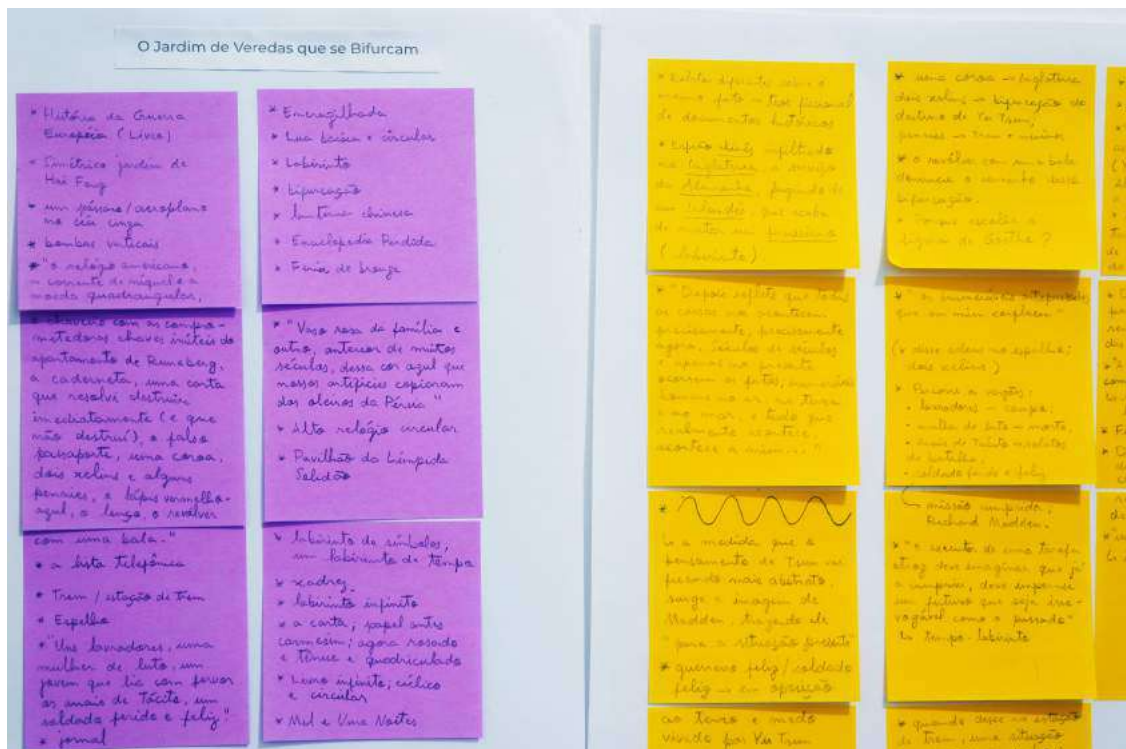 O Jardim de Veredas que se Bifurcam
* História da Guerra
Européia (Livro)
* Simétrico jardim de
Hai Feng
* um pássaro/aeroplano
no céu cinza
* bombas verticais
* "o relógio americano,
a corrente de níquel e a
moeda quadrangular,
o chaveiro com as compro-
metedoras chaves inúteis do
apartamento de Runeberg,
a caderneta, uma carta
que resolvi destruir
imediatamente (e que
não destruí), o falso
passaporte, uma coroa,
dois xelins e alguns
pennies, o lápis vermelho-
azul, o lenço, o revólver
com uma bala."
* a lista telefônica
* Trem / estação de trem
* Espelho
* "Uns lavradores, uma
mulher de luto, um
jovem que lia com fervor
os anais de Tácito, um
soldado ferido e feliz."
* jornal
* Encruzilhada
* Lua baixa e circular
* Labirinto
* bifurcação
* lanterna chinesa
* Enciclopédia Perdida
* Fênix de bronze
* "Vaso rosa da família e
outro, anterior de muitos
séculos, dessa cor azul que
nossos artífices copiaram
dos oleiros da Pérsia"
* Alto relógio circular
* Pavilhão da Límpida
Solidão
* labirinto de símbolos,
um labirinto de tempo
* xadrez
* labirinto infinito
* a carta; papel antes
carmesim; agora rosado
e tênue e quadriculado
* Livro infinito; cíclico
e circular
* Mil e Uma Noites
* Relato diferente sobre o
mesmo fato → tese ficcional
de documentos históricos
* Espião chinês infiltrado
na Inglaterra, a serviço
da Alemanha, fugindo de
um irlandês, que acaba
de matar um prussiano
(labirinto)
* "Depois refleti que todas
as coisas nos acontecem
precisamente, precisamente
agora. Séculos de séculos
e apenas no presente
ocorrem os fatos; inumeráveis
homens no ar, na terra
e no mar, e tudo que
realmente acontece,
acontece a mim..."
*
↳ a medida que o
pensamento de Tsun vai
ficando mais abstrato
surge a imagem de
Madden, trazendo ele
"para a situação presente"
* guerreiro feliz/soldado
feliz → em oposição
ao tenso e medo
vivido por Yu Tsun
* uma coroa → Inglaterra
dois xelins → bifurcação do
destino de Yu Tsun,
pennies → trem
* o revólver com uma bala
denuncia o caminho dessa
bifurcação.
* Porque escolhe a
figura de Goethe?
* "os inumeráveis antepassados
que em mim confluem"
(* disse adeus no espelho;
dois xelins)
* Percorre os vagões:
• lavradores – campo;
• mulher de luto – morte,
de batalha,
• soldado ferido e feliz
missão cumprida;
Richard Madden.
* "o executor de uma tarefa
atroz deve imaginar que já
a cumpriu, deve impor-se
um futuro que seja irre-
vogável como o passado"
↳ Tempo-labirinto
* quando desce na estação
de trem, uma situação